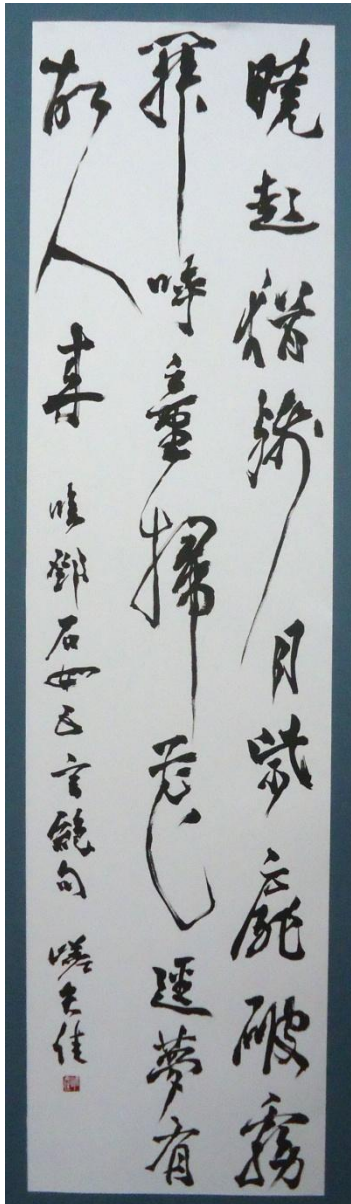 曉起猶殘月柴扉破霧
開呼童掃花逕夢有
故人來 鄧石如五言絶句